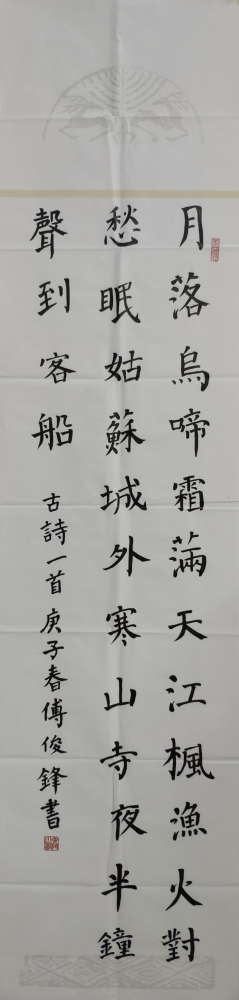 月落烏啼霜滿天江楓漁火對
愁眠姑蘇城外寒山寺夜半鐘
聲到客船
古詩一首庚子春傅俊鋒書